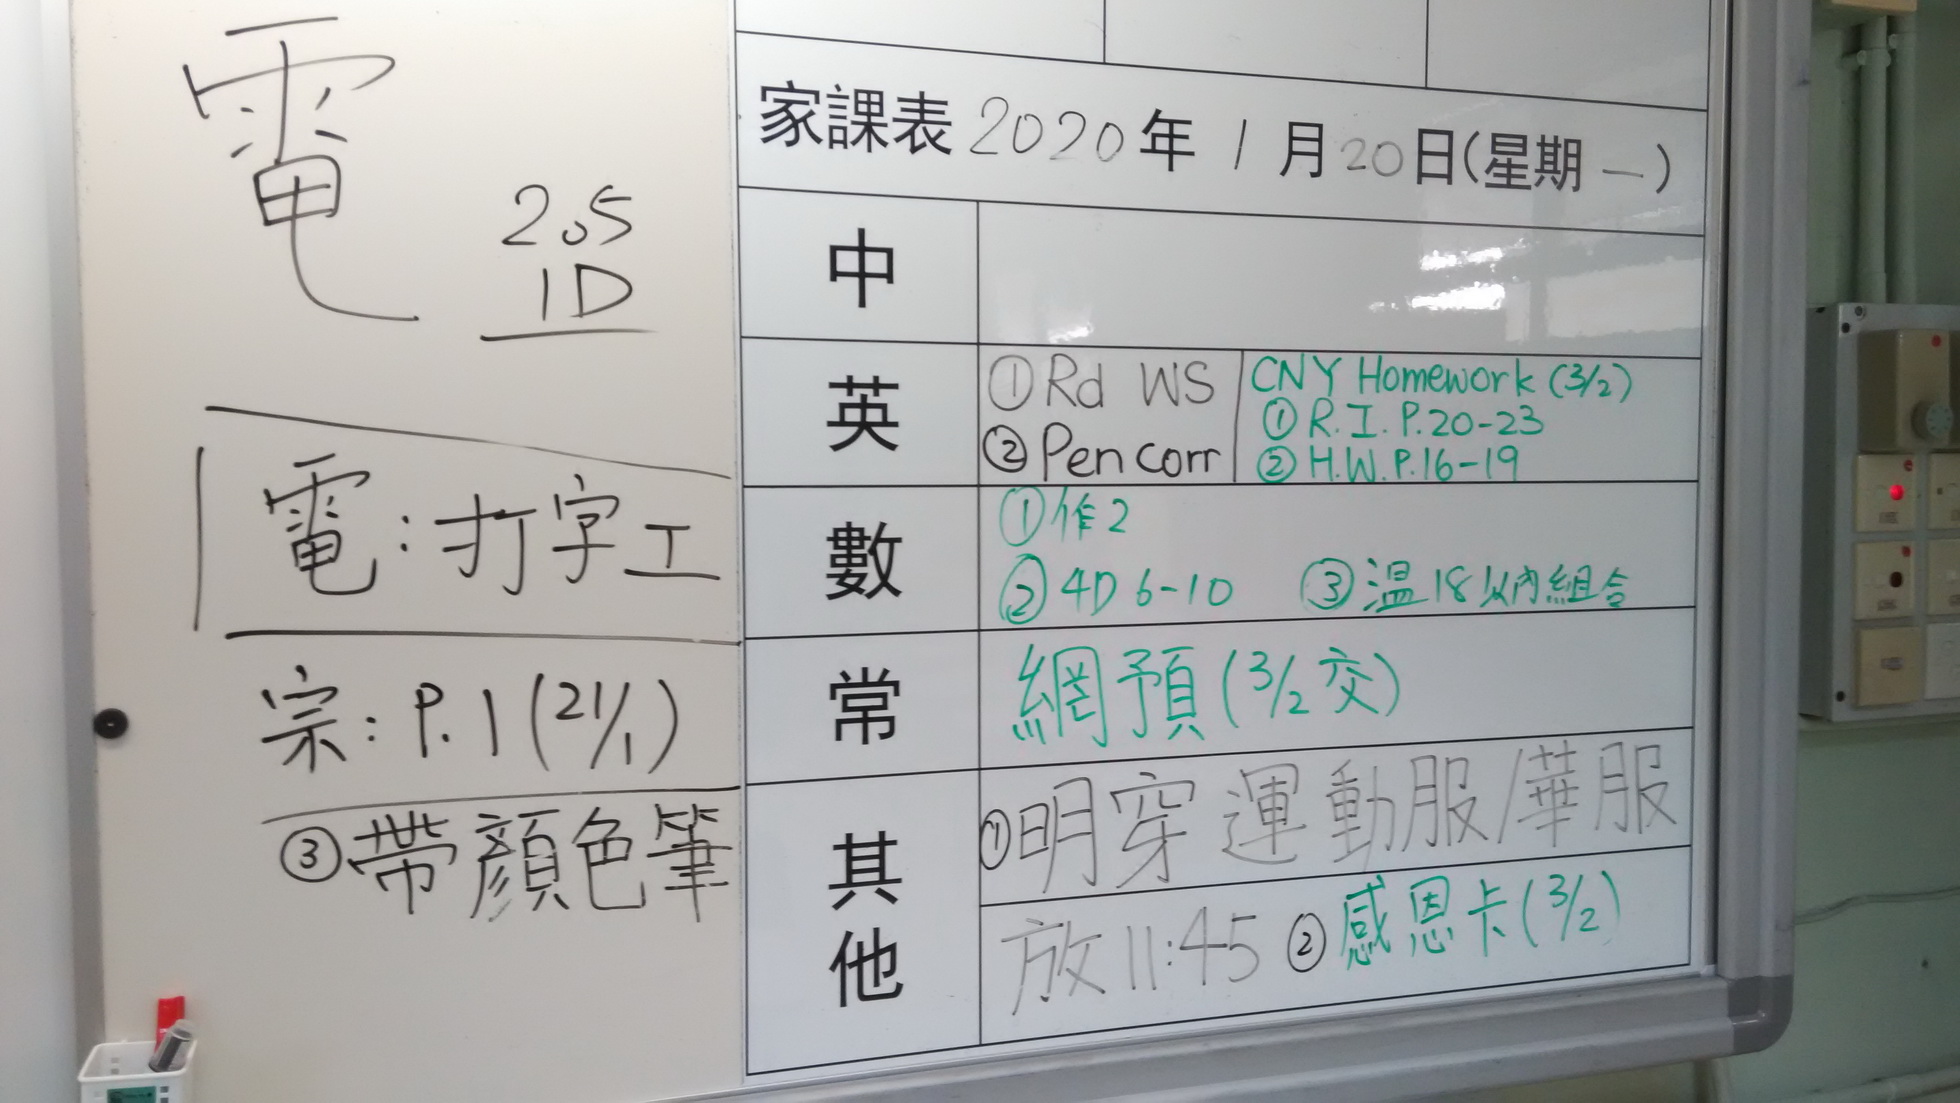 電
2.5
1D
電：打字工
宗：P.1 (21/1)
③帶顏色筆
家課表 2020年 1 月 20日(星期 一)
中
英
①Rd WS
②Pen corr
CNY Homework (3/2)
① R.I. P.20-23
② H.W. P.16-19
數
①作2
②4D 6-10 ③温18以內組合
常
網預(3/2交)
其他
①明穿運動服/華服
放11:45 ②感恩卡(3/2)